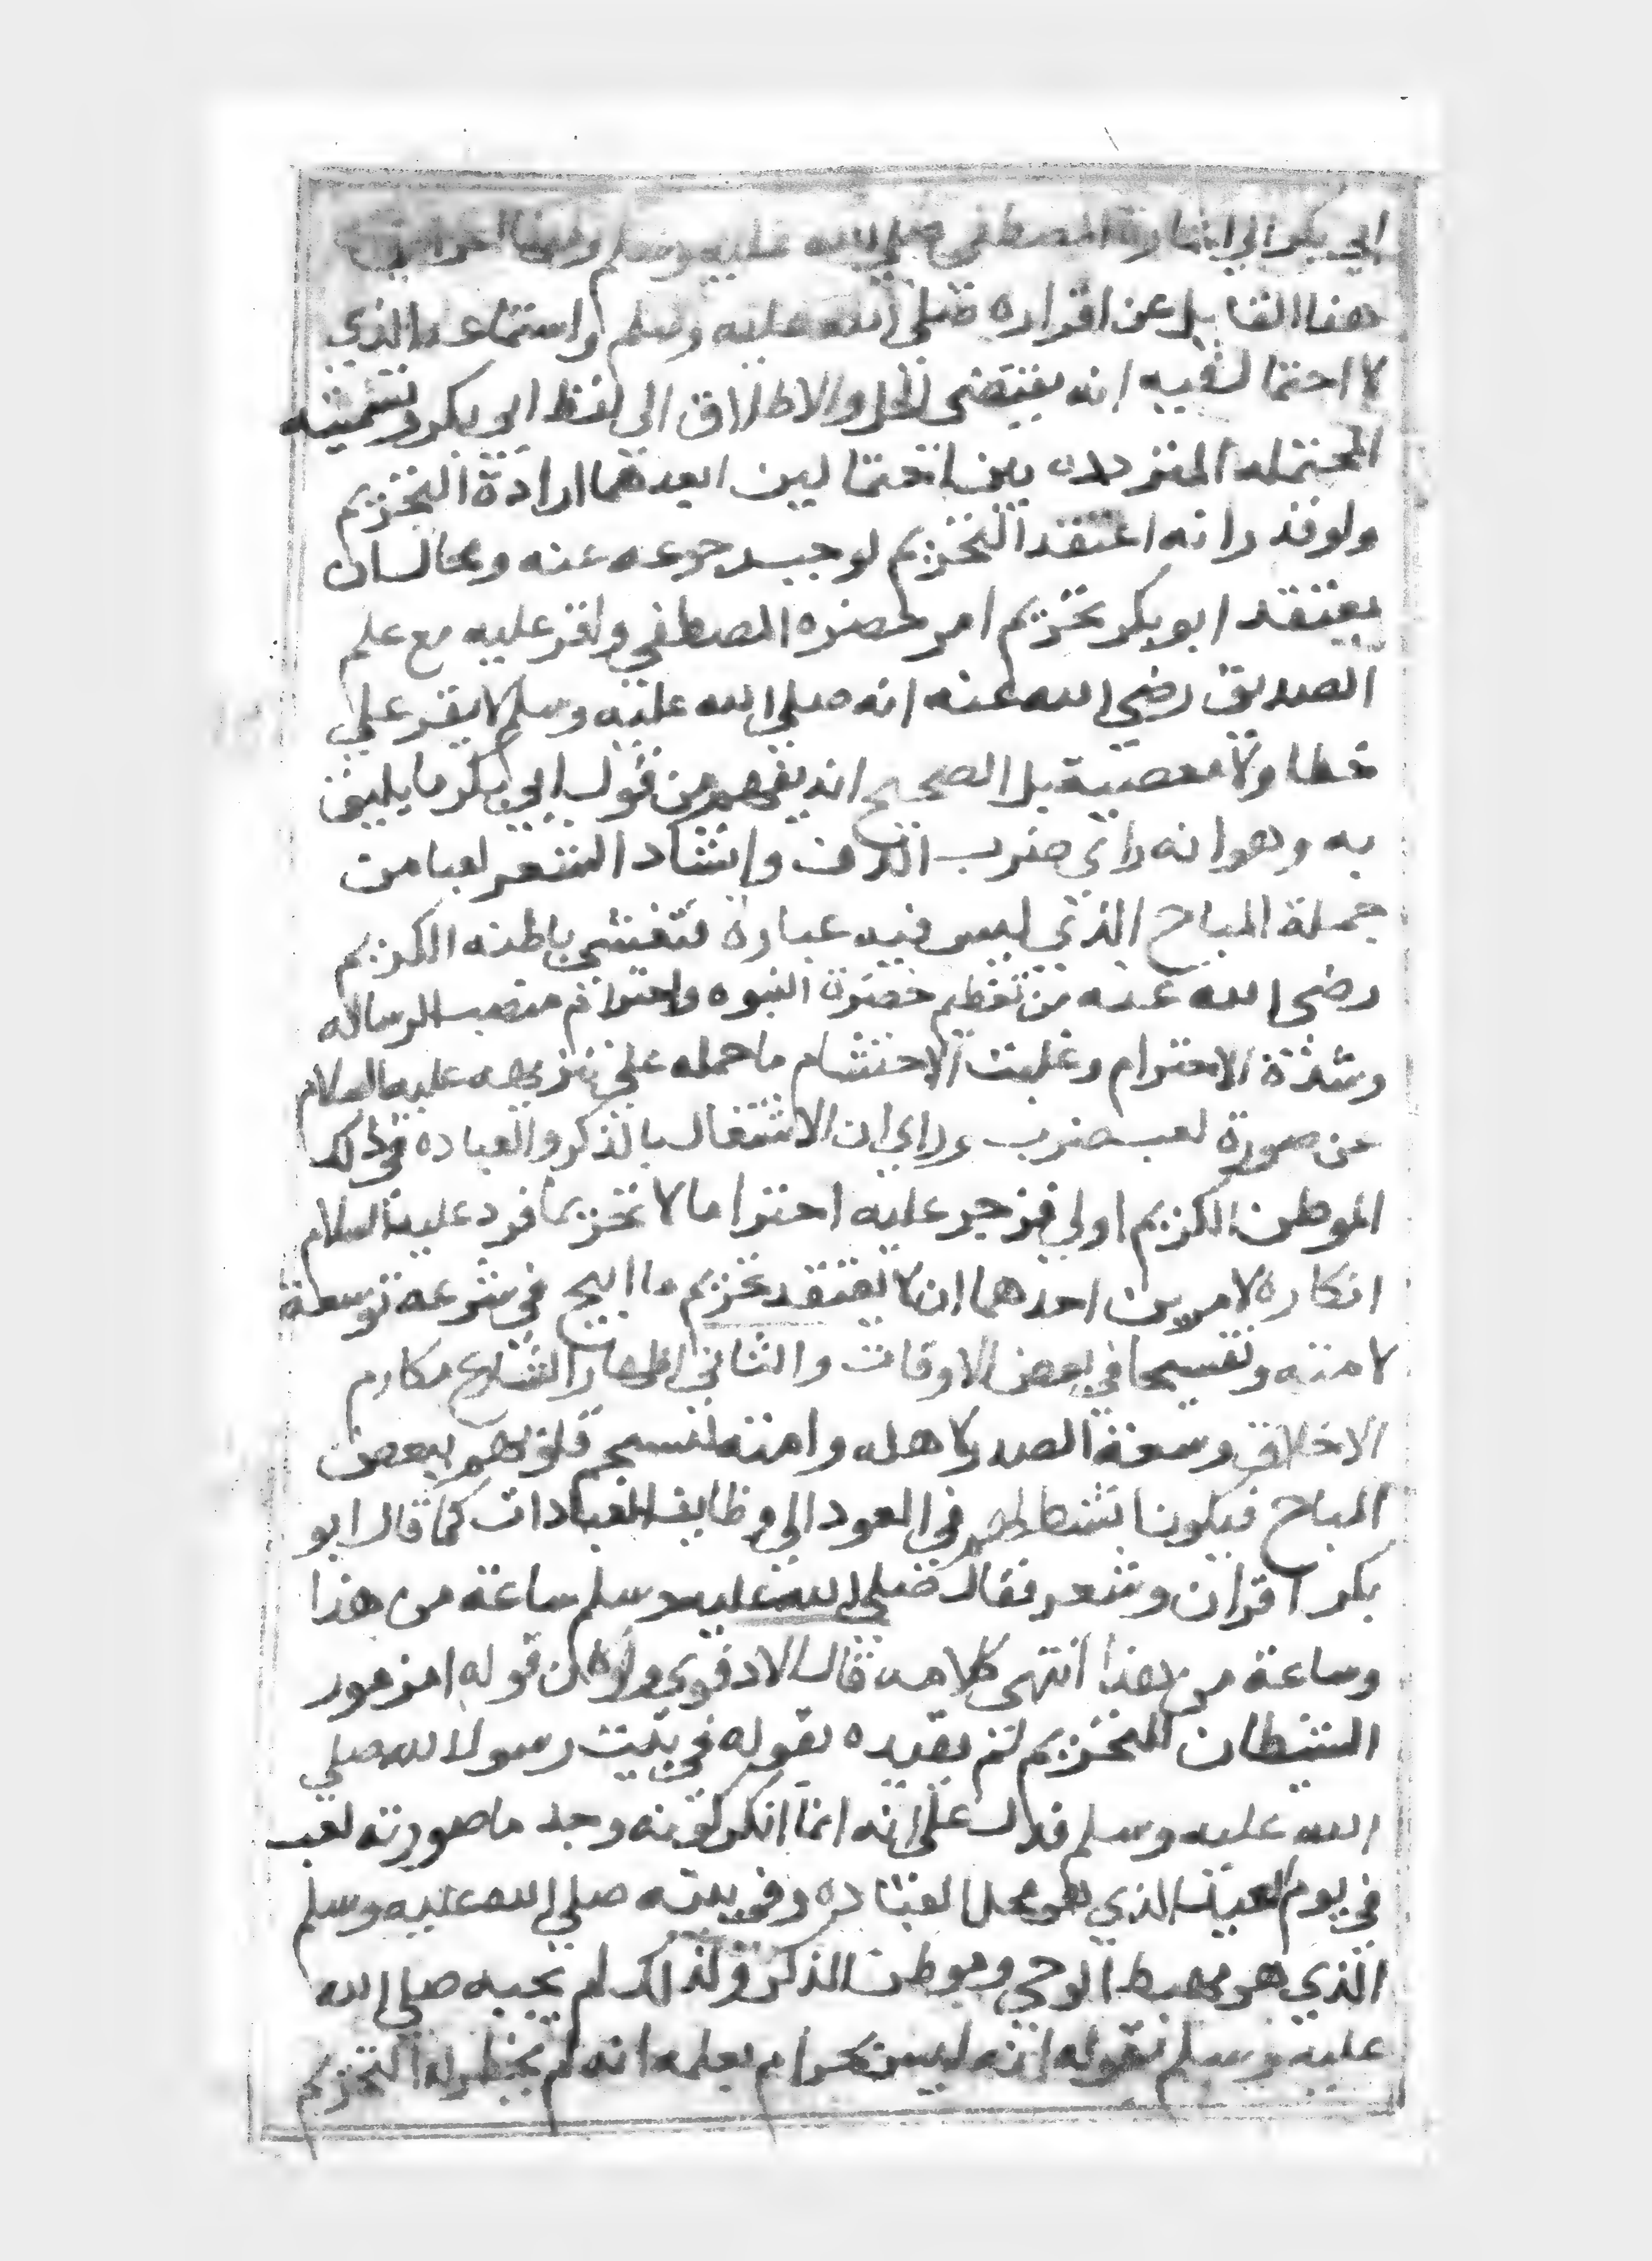 ابي بكر الى اشارة المصطفى صلى الله عليه وسلم
هذا القايل عن اقراره صلى الله عليه وسلم واستماعه الذي
لا احتمال فيه انه يقتضى الحل والاطلاق الى لفظ ابو بكر وتسميته
المحتمله المترددة بين احتمالين ابعدهما ارادة التحريم
ولو قدرا نه اعتقد التحريم لوجب رجوعه عنه ومحال ان
يعتقد ابو بكر تحريم امر حضره المصطفى واقر عليه مع علم
الصديق رضي الله عنه انه صلى الله عليه وسلم لا يقر على
خطا ولا معصية بل الصحيح انه يفهم من قول ابي بكر ما يليق
به وهو انه راى ضرب الدف وانشاد الشعر لعبا من
جملة المباح الذي ليس فيه عبادة فتغشى باطنه الكريم
رضى الله عنه من تعظيم حضرة النبوه واحترام منصب الرساله
وشدة الاحترام وغلبت الاحتشام ما حمله على تنزيهه عليه السلام
عن صورة لعب ضرب وراى ان الاشتغال بالذكر والعباده في ذلك
الموطن الكريم اولى فزجر عليه احتراما لا تحريما فرد عليه السلام
انكاره لامرين احدهما ان لا تعتقد تحريم ما ابيح في شرعه توسعة
لامته وتفسيحا في بعض الاوقات والثاني اظهار الشارع مكارم
الاخلاق وسعة الصدر لاهله وامته لتستجم قلوبهم ببعض
المباح فيكون انشط لهم في العود الى وظايف العبادات كما قال ابو
بكر اقران وشعر فقال صلى الله عليه وسلم ساعة من هذا
وساعة من هذا انتهى كلامه قال الادفوي ولو كان قوله امزمور
الشيطان للتحريم لم يقيده بقوله في بيت رسول الله صلي
الله عليه وسلم فدل على انه انما انكر كونه وجد ما صورته لعب
في يوم العيد الذي هو محل العباده وفي بيته صلي الله عليه وسلم
الذي هو مهبط الوحي وموطن الذكر ولذلك لم يجبه صلي الله
عليه وسلم بقوله انه ليس بحرام بعلمه انه لم يخطر له التحريم